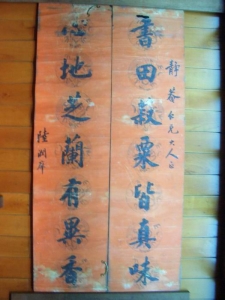 靜菴仁兄大人正
書田穀粟皆真味
心地芝蘭有異香
陸潤庠